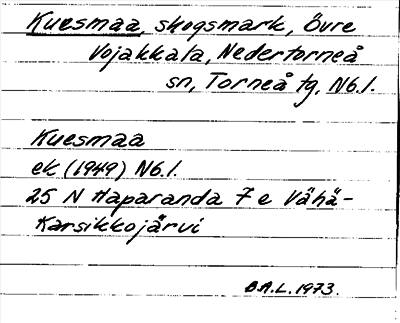 Kuesmaa, skogsmark, Övre
Vojakkala, Nedertorneå
sn, Torneå tg, N6.l.
Kuesmaa
ek (1949) N6.l.
25 N Haparanda 7 e Vähä-
Karsikkojärvi
B.A.L. 1973.